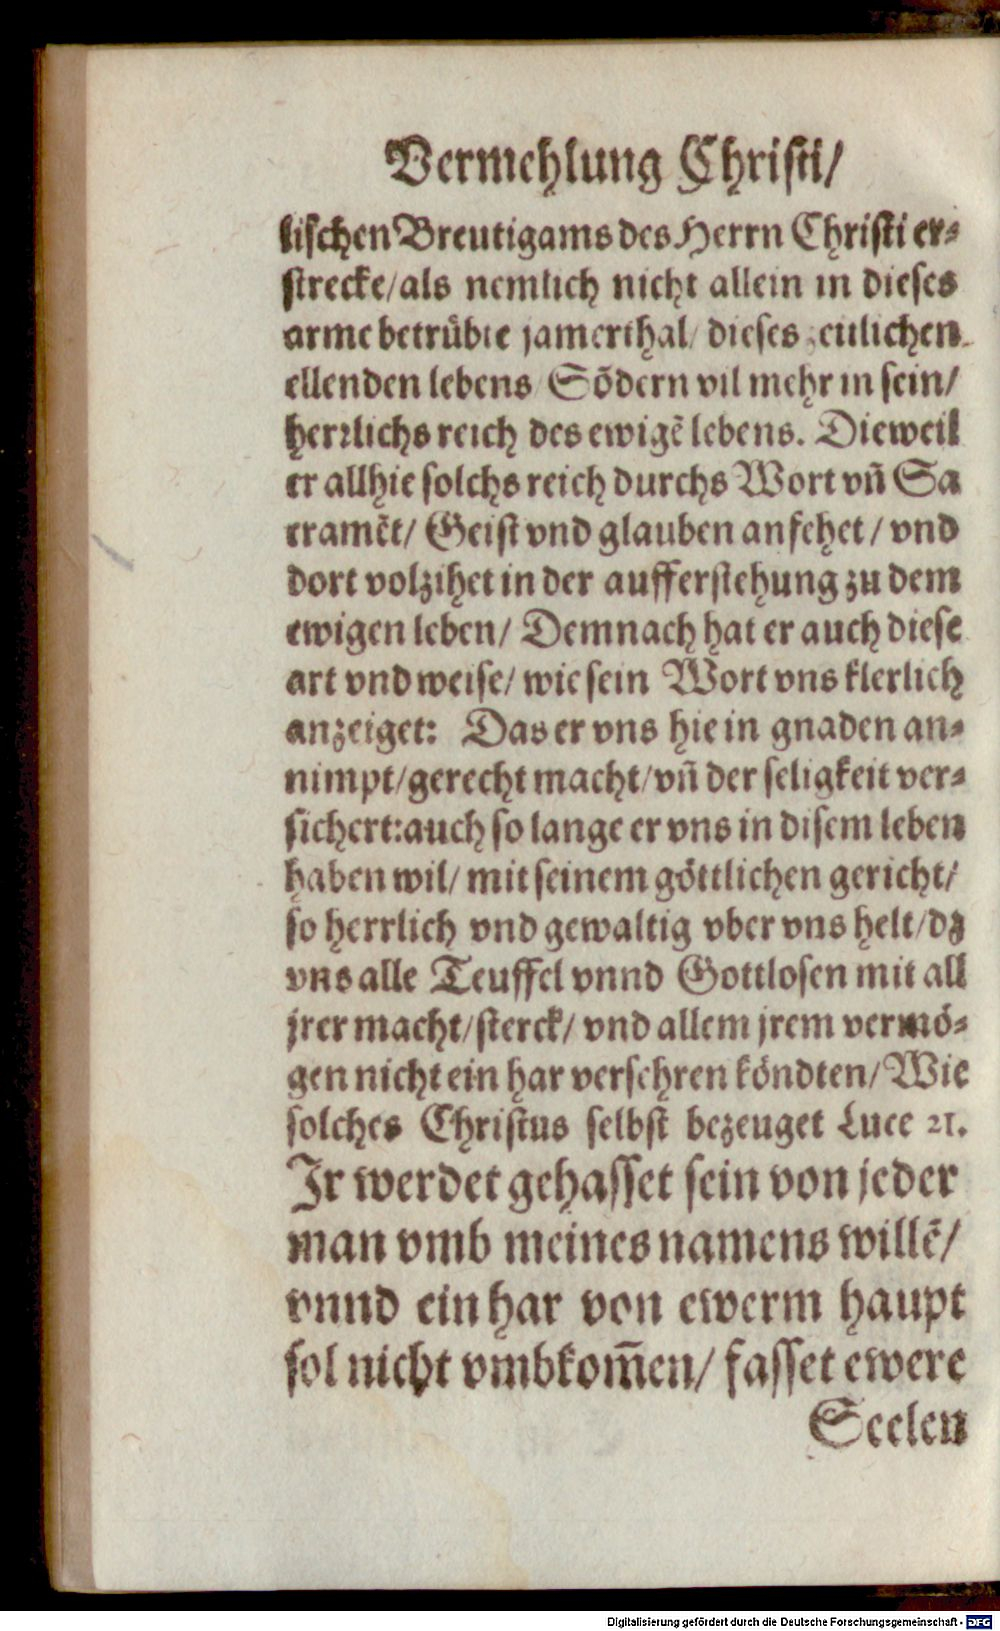 Vermehlung Christi/
lischen Breutigams des Herrn Christi er⸗
strecke/als nemlich nicht allein in dieses
arme betrübte jamerthal/ dieses zeitlichen
ellenden lebens/ Sõdern vil mehr in sein/
herrlichs reich des ewigẽ lebens. Dieweil
er allhie solchs reich durchs Wort vñ Sa
cramẽt/ Geist vnd glauben anfehet/ vnd
dort volzihet in der aufferstehung zu dem
ewigen leben/ Demnach hat er auch diese
art vnd weise/ wie sein Wort vns klerlich
anzeiget: Das er vns hie in gnaden an⸗
nimpt/gerecht macht/vñ der seligkeit ver⸗
sichert:auch so lange er vns in disem leben
haben wil/ mit seinem göttlichen gericht/
so herrlich vnd gewaltig vber vns helt/dz
vns alle Teuffel vnnd Gottlosen mit all
jrer macht/sterck/ vnd allem jrem vermö⸗
gen nicht ein har versehren köndten/Wie
solches Christus selbst bezeuget Luce 21.
Jr werdet gehasset sein von jeder
man vmb meines namens willẽ/
vnnd ein har von ewerm haupt
sol nicht vmbkom̃en/ fasset ewere
Seelen
Digitalisierung gefördert durch die Deutsche Forschungsgemeinschaft - DFG